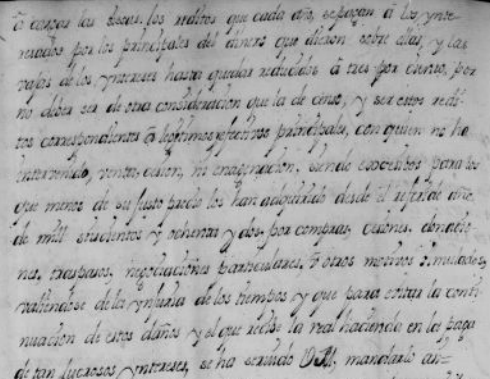 ô cargar las dichas, los reditos que cada año, se pagan â los ynte-
resados por los principales del dinero que dieron sobre ellas, y las
vajas de los yntereses hasta quedar reducidos â tres por ciento, por
no deber ser de otra consideracion que la de cinco, y ser estos redi-
tos correspondientes â legitimos efectivos principales, con quien no ha
intervenido, venta, cesion, ni enagenacion, siendo excesibos para los
que menos de su justo precio los han adquirido desde el referido año
de mill seiscientos y ochenta y dos, por compras, cesiones, donacio-
nes, traspasos, negociaciones particulares, û otros motivos simulados,
valiendose de la ynjuria de los tiempos y que para evitar la conti-
nuacion de estos daños y el que recive la real hacienda en la paga
de tan lucrosos yntereses, se ha servido V.M. mandarlo an=